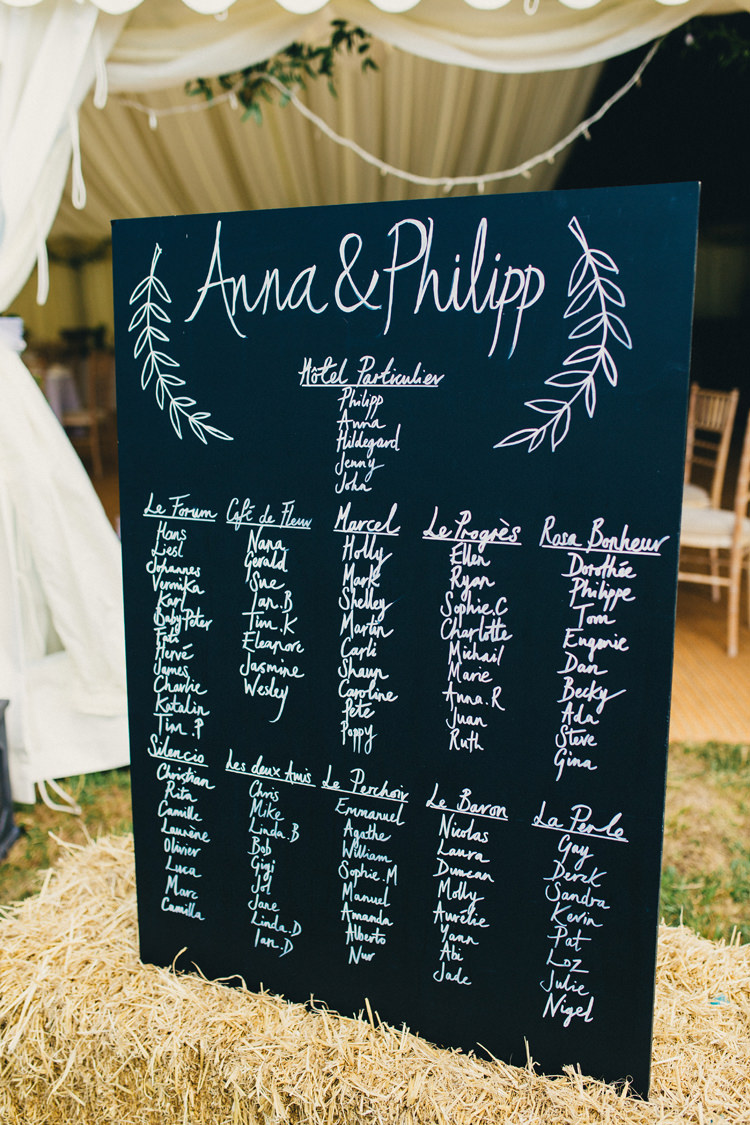 Anna & Philipp
Hôtel Particulier
Philipp
Anna
Hildegard
Jenny
John
Le Forum
Hans
Liesl
Johannes
Veronika
Karl
Baby Peter
Fati
Hervé
James
Charlie
Katalin
Tim.P
Café de Fleur
Nana
Gerald
Sue
Ian.B
Tim.K
Eleanore
Jasmine
Wesley
Marcel
Holly
Mark
Shelley
Martin
Carli
Shaun
Caroline
Pete
Poppy
Le Progrès
Ellen
Ryan
Sophie.C
Charlotte
Michail
Marie
Anna.R
Juan
Ruth
Rosa Bonheur
Dorothée
Philippe
Tom
Eugenie
Dan
Becky
Ada
Steve
Gina
Silencio
Christian
Rita
Camille
Laurène
Olivier
Luca
Marc
Camilla
Les deux Amis
Chris
Mike
Linda.B
Bob
Gigi
Jol
Jane
Linda.D
Ian.D
Le Perchoir
Emmanuel
Agathe
William
Sophie.M
Manuel
Amanda
Alberto
Nur
Le Baron
Nicolas
Laura
Duncan
Molly
Aurélie
Yann
Abi
Jade
La Perle
Gay
Derek
Sandra
Kevin
Pat
Loz
Julie
Nigel